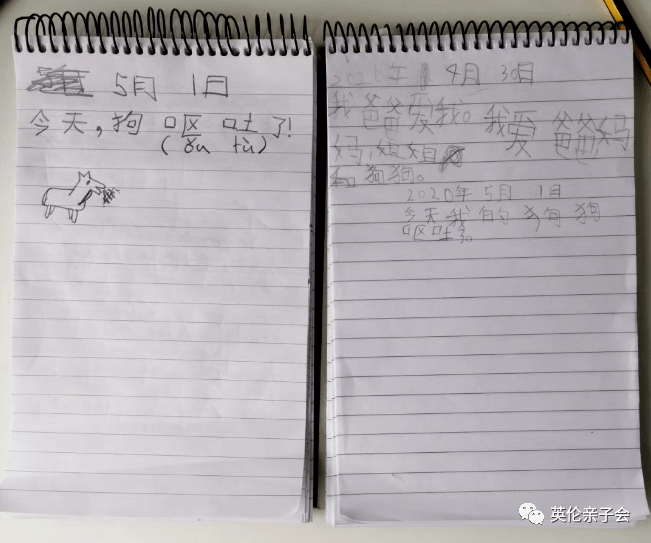 5月 1日
今天,狗 呕 吐 了!
(ǒu tù)
2020年 4月 30日
我爸爸爱我。我爱 爸爸妈
妈,姐姐
和 狗狗。
2020年 5月 1日
今天我 的 狗狗
呕吐了。
英伦亲子会